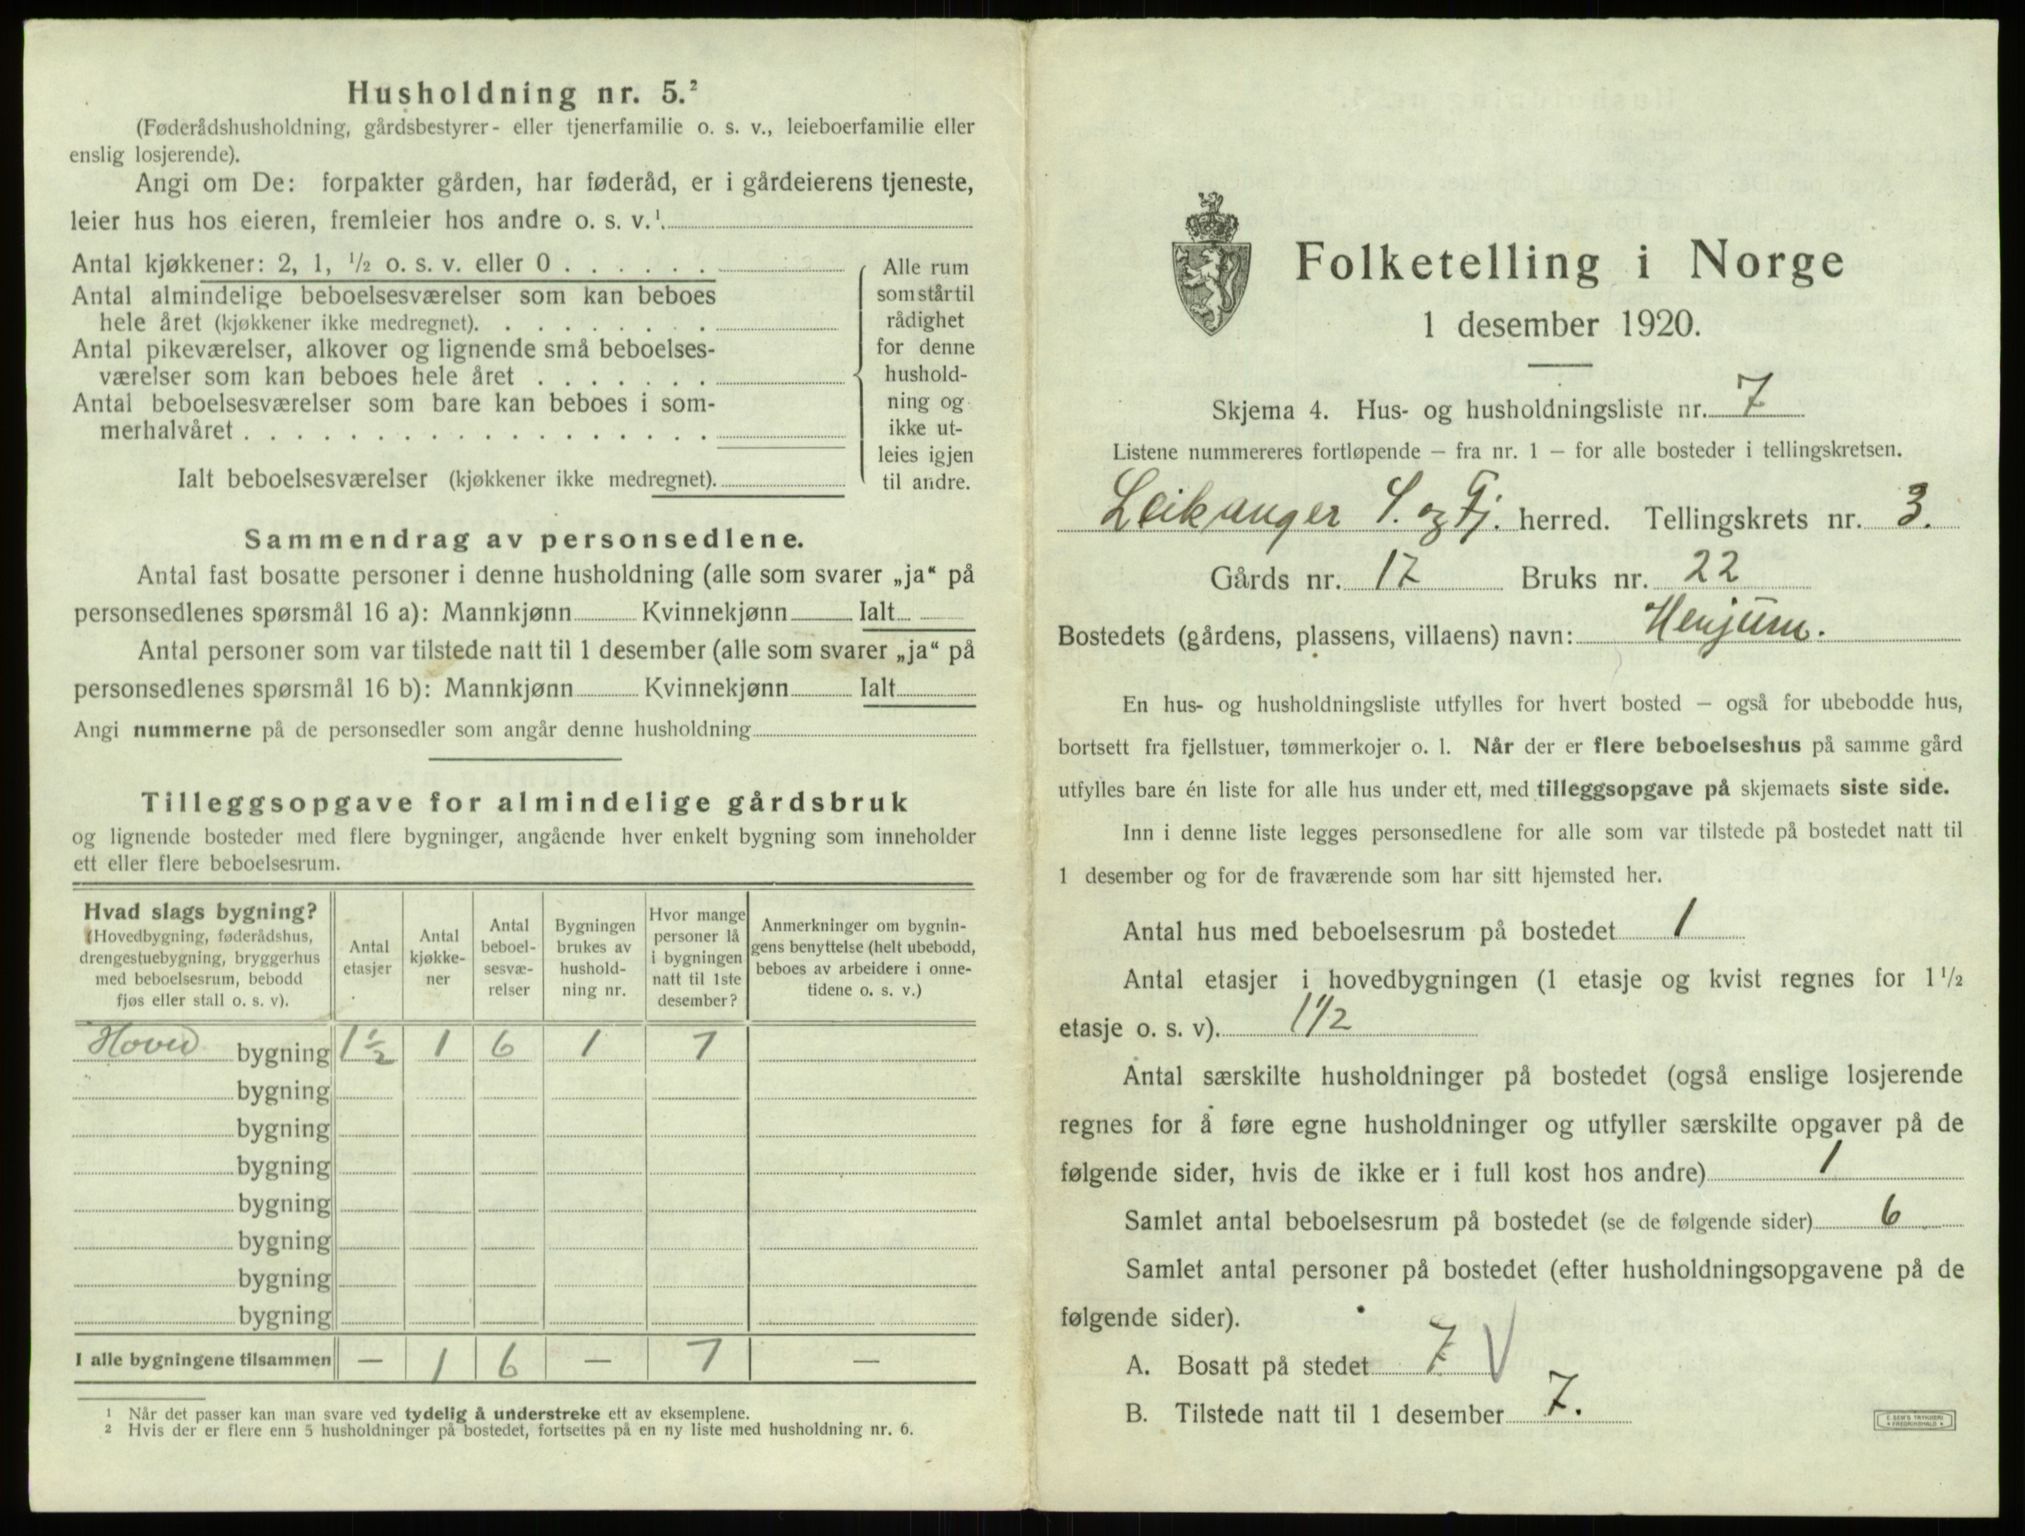 Husholdning nr. 5.²
(Føderådshusholdning, gårdsbestyrer- eller tjenerfamilie o. s. v., leieboerfamilie eller
enslig losjerende).
Angi om De: forpakter gården, har føderåd, er i gårdeierens tjeneste,
leier hus hos eieren, fremleier hos andre o. s. v.¹
Antal kjøkkener: 2, 1, ½ o. s. v. eller 0 . . . . . .
Antal almindelige beboelsesværelser som kan beboes
hele året (kjøkkener ikke medregnet). . . . . . . . .
Antal pikeværelser, alkover og lignende små beboelses-
værelser som kan beboes hele året . . . . . . .
Antal beboelsesværelser som bare kan beboes i som-
merhalvåret . . . . . . . . . . . . . . . . . .
Ialt beboelsesværelser (kjøkkener ikke medregnet).
Alle rum
som står til
rådighet
for denne
hushold-
ning og
ikke ut-
leies igjen
til andre.
Sammendrag av personsedlene.
Antal fast bosatte personer i denne husholdning (alle som svarer „ja“ på
personsedlenes spørsmål 16 a): Mannkjønn Kvinnekjønn Ialt
Antal personer som var tilstede natt til 1 desember (alle som svarer „ja“ på
personsedlenes spørsmål 16 b): Mannkjønn Kvinnekjønn Ialt
Angi nummerne på de personsedler som angår denne husholdning
Tilleggsopgave for almindelige gårdsbruk
og lignende bosteder med flere bygninger, angående hver enkelt bygning som inneholder
ett eller flere beboelsesrum.
Hvad slags bygning?
(Hovedbygning, føderådshus,
drengestuebygning, bryggerhus
med beboelsesrum, bebodd
fjøs eller stall o. s. v).
Antal
etasjer
Antal
kjøkke-
ner
Antal
beboel-
sesvæ-
relser
Bygningen
brukes av
hushold-
ning nr.
Hvor mange
personer lå
i bygningen
natt til 1ste
desember?
Anmerkninger om bygnin-
gens benyttelse (helt ubebodd,
beboes av arbeidere i onne-
tidene o. s. v.)
Hoved bygning 1½ 1 6 1 7
bygning
bygning
bygning
bygning
bygning
bygning
bygning
I alle bygningene tilsammen — 1 6 — 7 —
¹ Når det passer kan man svare ved tydelig å understreke ett av eksemplene.
² Hvis der er flere enn 5 husholdninger på bostedet, fortsettes på en ny liste med husholdning nr. 6.
Folketelling i Norge
1 desember 1920.
Skjema 4. Hus- og husholdningsliste nr. 7
Listene nummereres fortløpende — fra nr. 1 — for alle bosteder i tellingskretsen.
Leikanger S. og Fj. herred. Tellingskrets nr. 3.
Gårds nr. 17 Bruks nr. 22
Bostedets (gårdens, plassens, villaens) navn: Henjum.
En hus- og husholdningsliste utfylles for hvert bosted — også for ubebodde hus,
bortsett fra fjellstuer, tømmerkojer o. l. Når der er flere beboelseshus på samme gård
utfylles bare én liste for alle hus under ett, med tilleggsopgave på skjemaets siste side.
Inn i denne liste legges personsedlene for alle som var tilstede på bostedet natt til
1 desember og for de fraværende som har sitt hjemsted her.
Antal hus med beboelsesrum på bostedet 1
Antal etasjer i hovedbygningen (1 etasje og kvist regnes for 1½
etasje o. s. v). 1½
Antal særskilte husholdninger på bostedet (også enslige losjerende
regnes for å føre egne husholdninger og utfyller særskilte opgaver på de
følgende sider, hvis de ikke er i full kost hos andre) 1
Samlet antal beboelsesrum på bostedet (se de følgende sider) 6
Samlet antal personer på bostedet (efter husholdningsopgavene på de
følgende sider).
A. Bosatt på stedet 7 V
B. Tilstede natt til 1 desember 7.